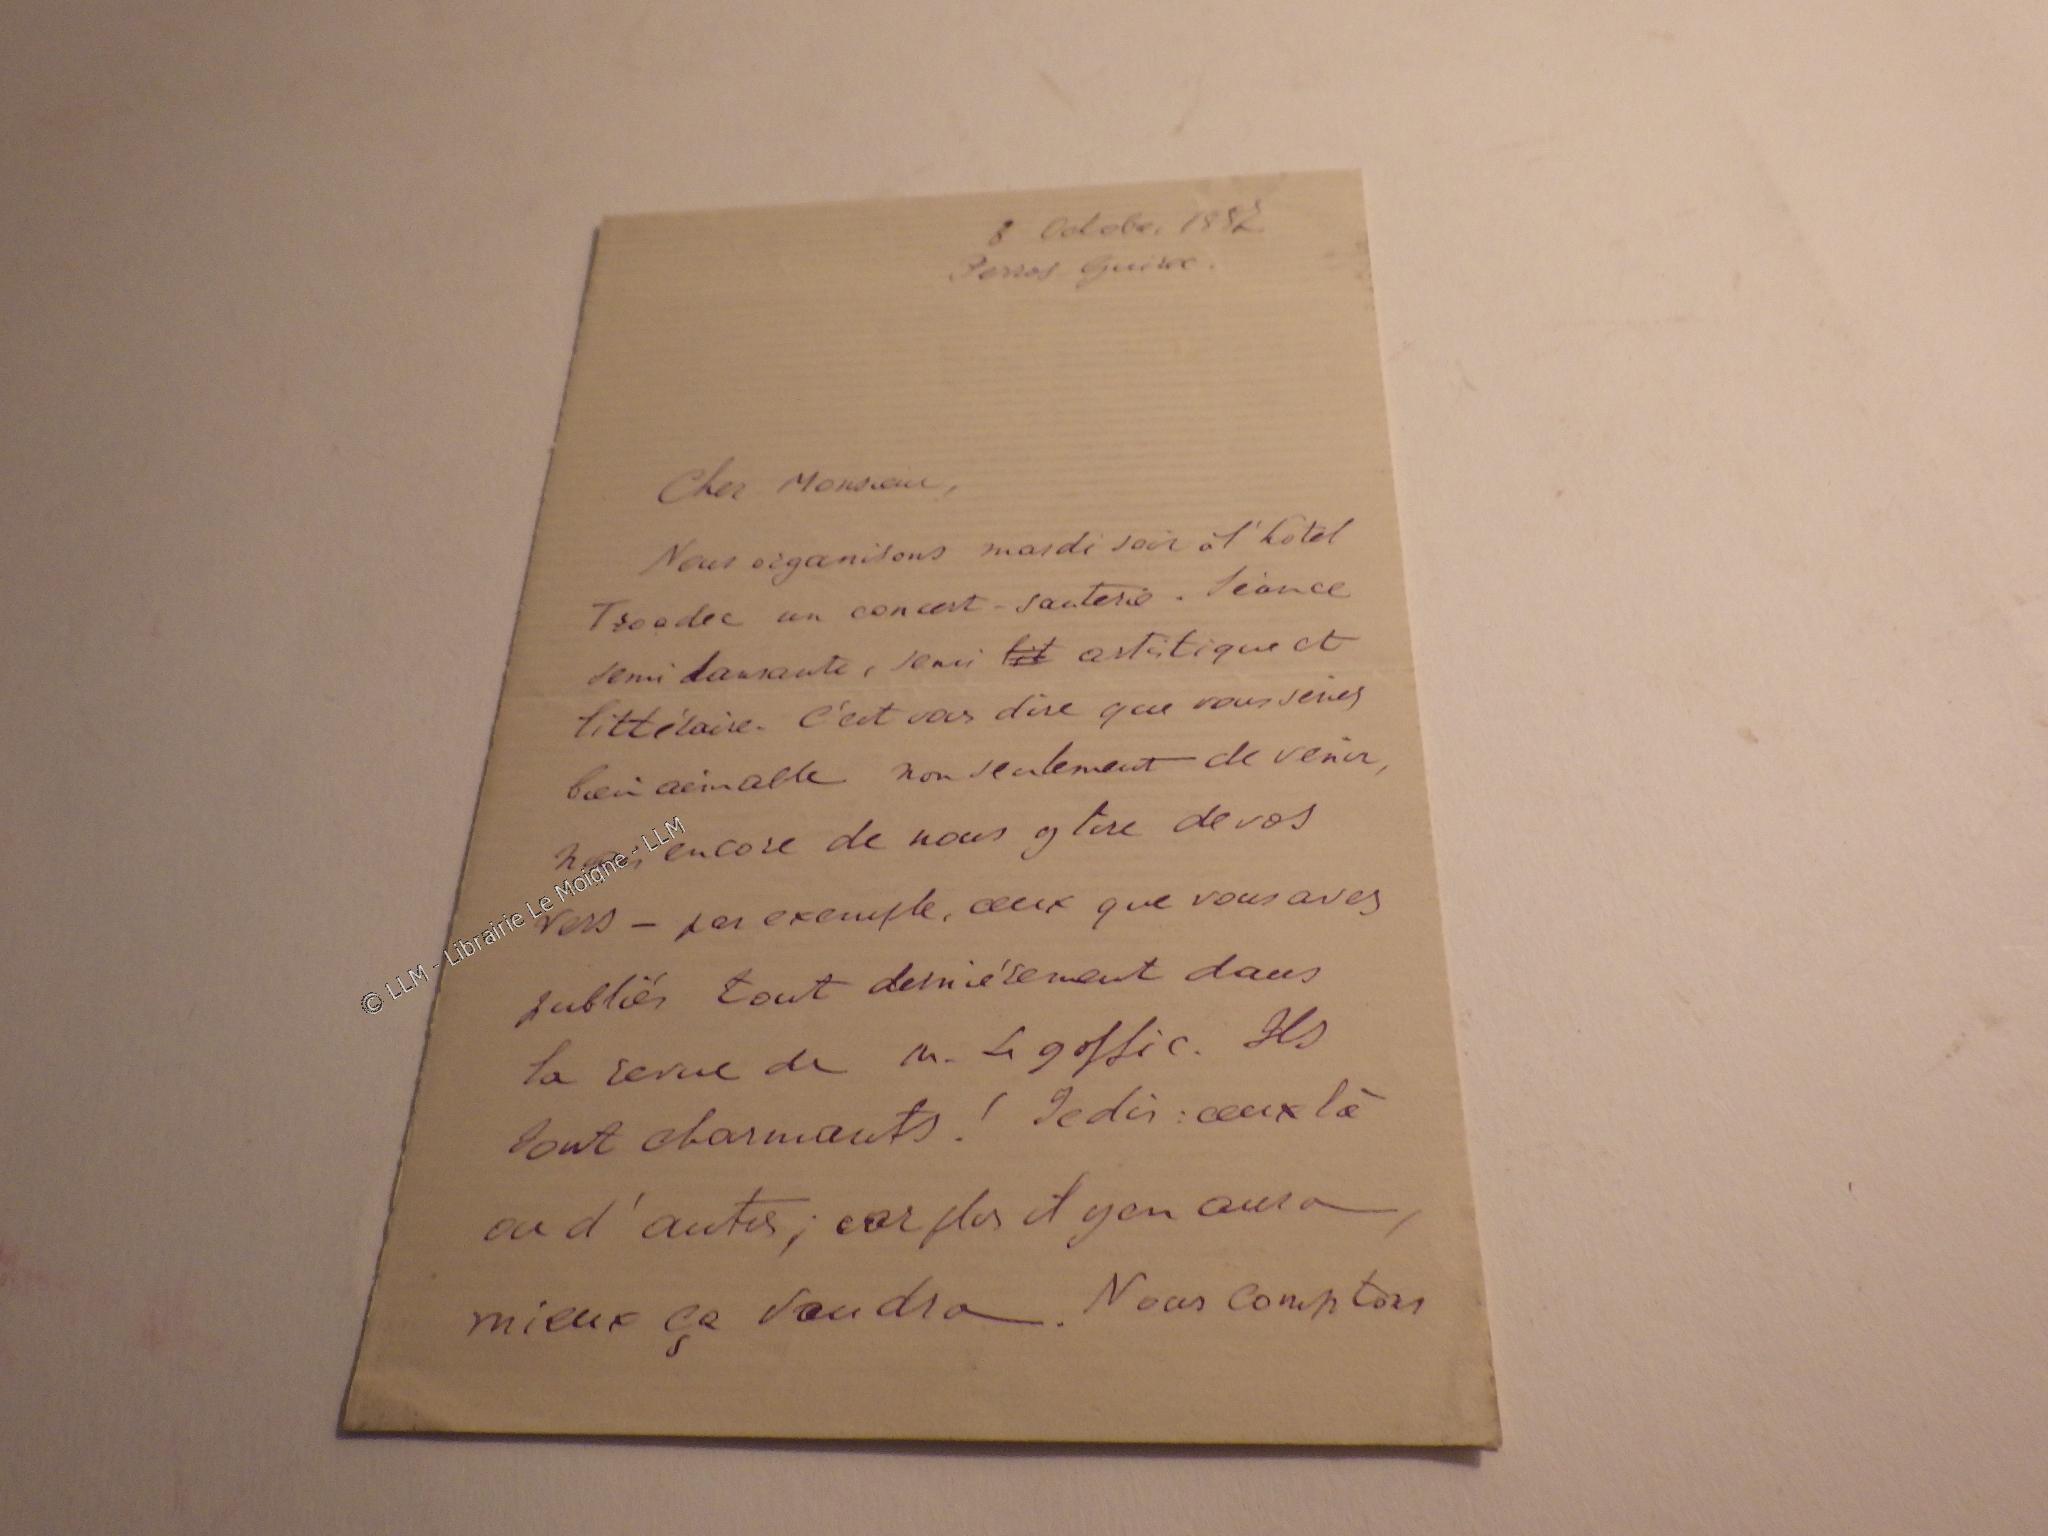 8 Octobre, 188
Perros Guirec.
Cher Monsieur,
Nous organisons mardi soir à l'hôtel
Troadec un concert-sauterie. Séance
semi dansante, semi lit artistique et
littéraire. C'est vous dire que vous seriez
bien aimable non seulement de venir,
mais encore de nous y lire de vos
vers — par exemple, ceux que vous avez
publiés tout dernièrement dans
la revue de M. Le goffic. Ils
sont charmants! Je dis: ceux là
ou d'autres; car plus il y en aura,
mieux ça vaudra. Nous comptons
© LLM - Librairie Le Moigne - LLM